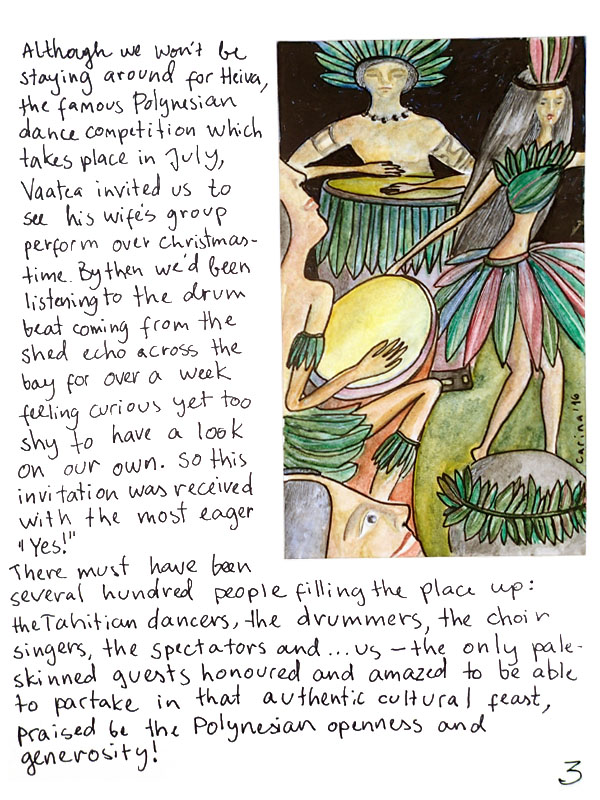 Although we won't be
staying around for Heiva,
the famous Polynesian
dance competition which
takes place in July,
Vaatea invited us to
see his wife's group
perform over Christmas-
time. By then we'd been
listening to the drum
beat coming from the
shed echo across the
bay for over a week
feeling curious yet too
shy to have a look
on our own. So this
invitation was received
with the most eager
"Yes!"
There must have been
several hundred people filling the place up:
the Tahitian dancers, the drummers, the choir
singers, the spectators and...us – the only pale-
skinned guests honoured and amazed to be able
to partake in that authentic cultural feast,
praised be the Polynesian openness and
generosity!
Carina '16
3